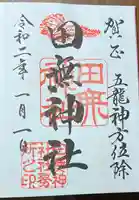 賀正 五龍神方位除
田無神社
令和二年一月一日